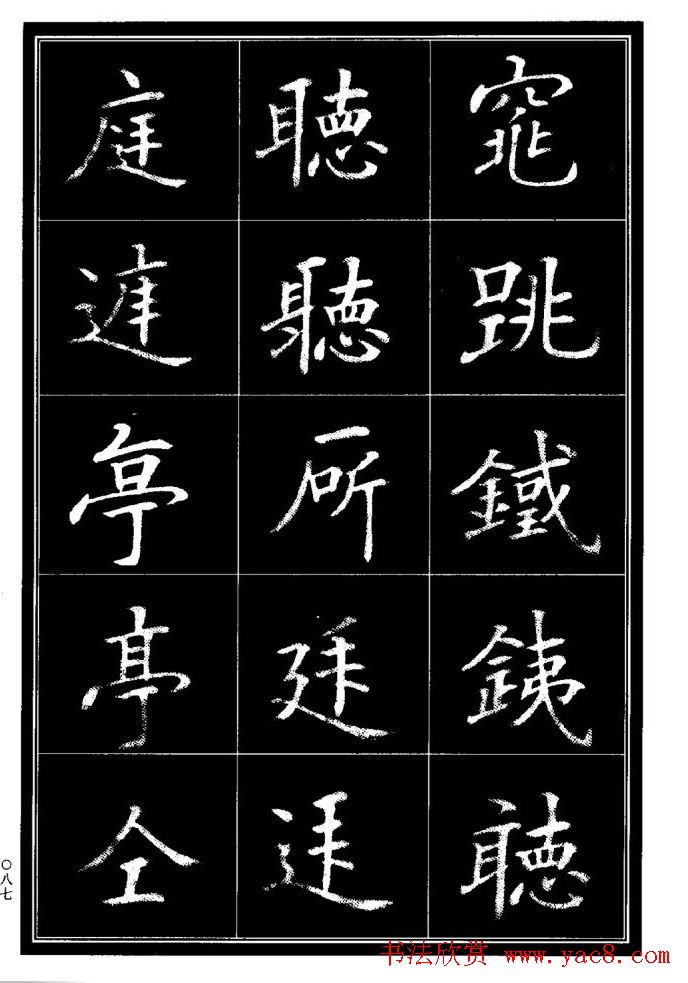 窕跳鐵銕聴
聴聽廷
庭亭亭仝
〇八七
书法欣赏 www.yac8.com